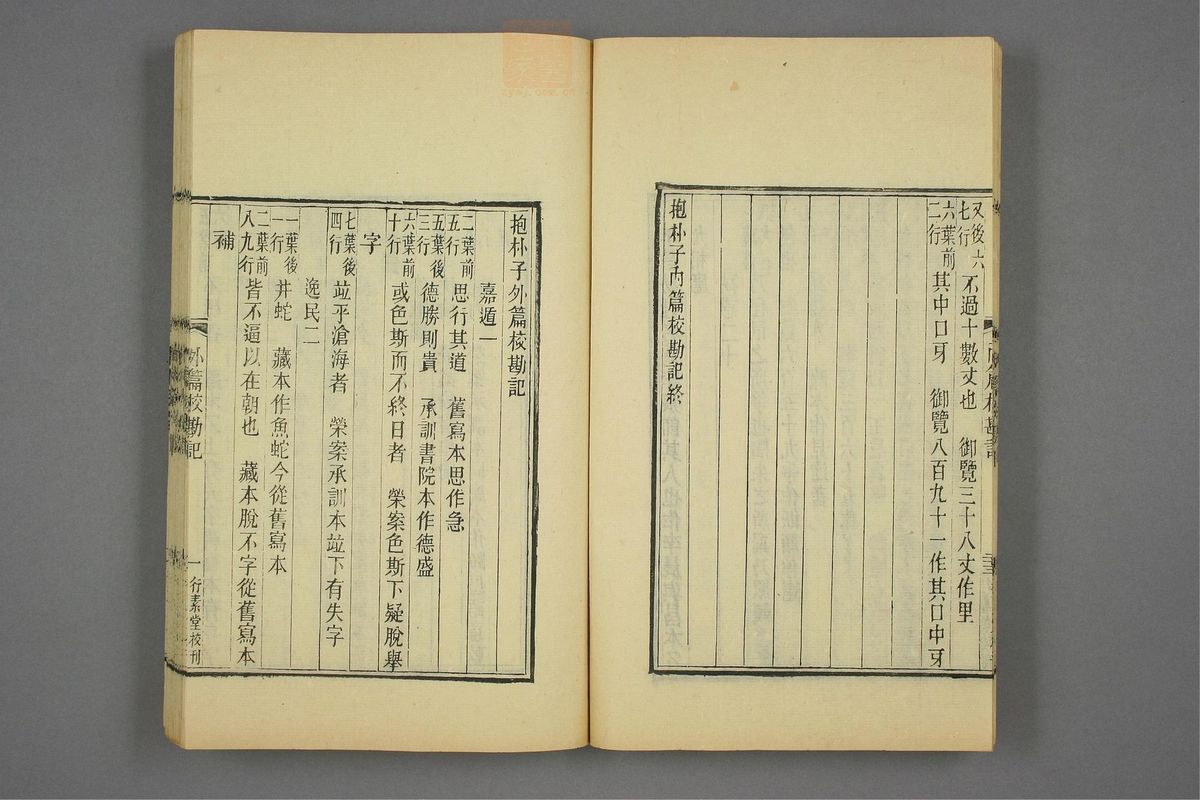 又後六七行 不過十數丈也 御覽三十八丈作里
六葉前二行 其中口牙 御覽八百九十一作其口中牙
抱朴子內篇校勘記終
抱朴子外篇校勘記
嘉遁一
二葉前五行 思行其道 舊寫本思作急
五葉後三行 德勝則貴 承訓書院本作德盛
六葉前十行 或色斯而不終日者 榮案色斯下疑脫舉
字
七葉後四行 竝乎滄海者 榮案承訓本竝下有失字
逸民二
一葉後一行 井蛇 藏本作魚蛇今從舊寫本
二葉前八九行 皆不逼以在朝也 藏本脫不字從舊寫本
補
外篇校勘記
一 行素堂校刊